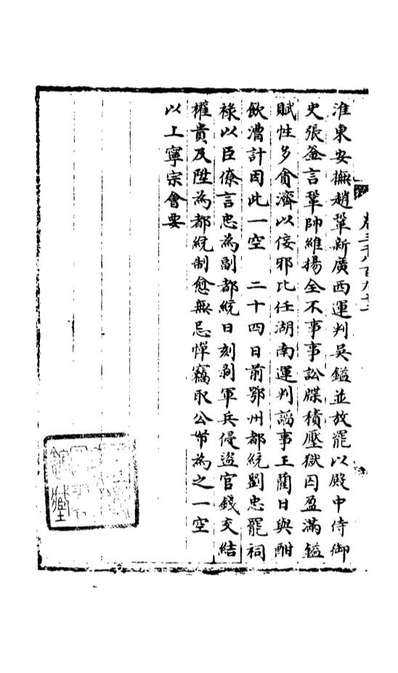 淮東安撫趙鞏新廣西運判吳鎰並放罷以殿中侍御
史張釜言鞏帥維揚全不事事訟牒積壓獄囚盈滿鎰
賦性多貪濟以佞邪比任湖南運判謟事王藺日與酣
飲漕計因此一空 二十四日前鄂州都統劉忠罷祠
祿以臣僚言忠為副都統日刻剥軍兵侵盜官錢交結
權貴及陞為都統制愈無忌憚竊取公帑為之一空
以上寧宗會要